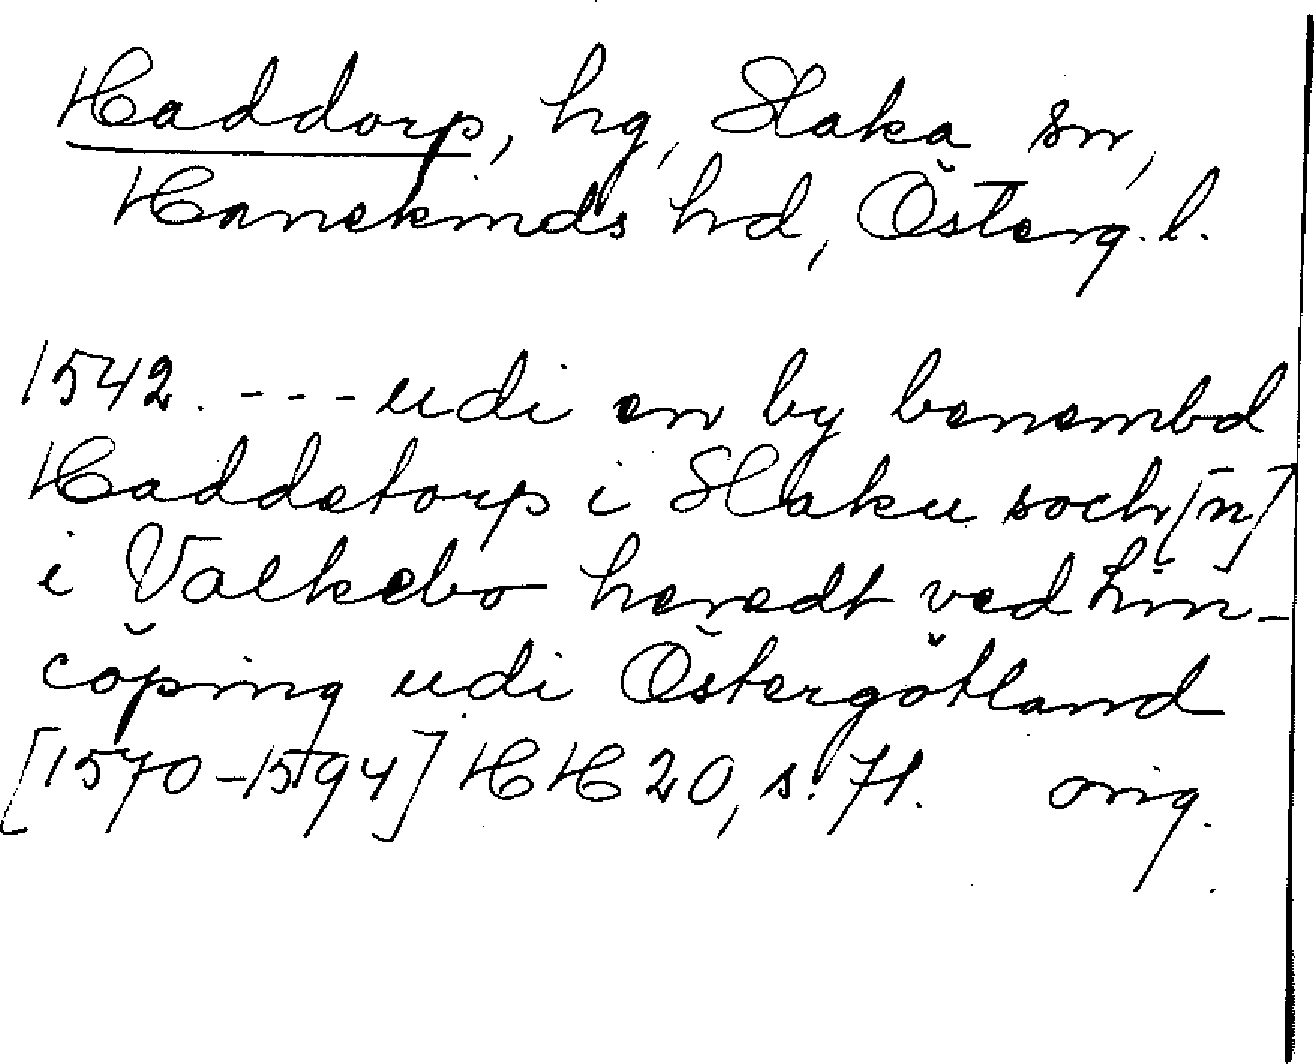 Haddorp, hg, Slaka sn,
Hanekinds hd, Österg. l.
1542. - - - udi en by benembd
Haddetorp i Slaku soch[n]
i Valkebo heredt ved Lin-
cöping udi Östergötland
[1570-1594] HH 20, s. 71. orig.